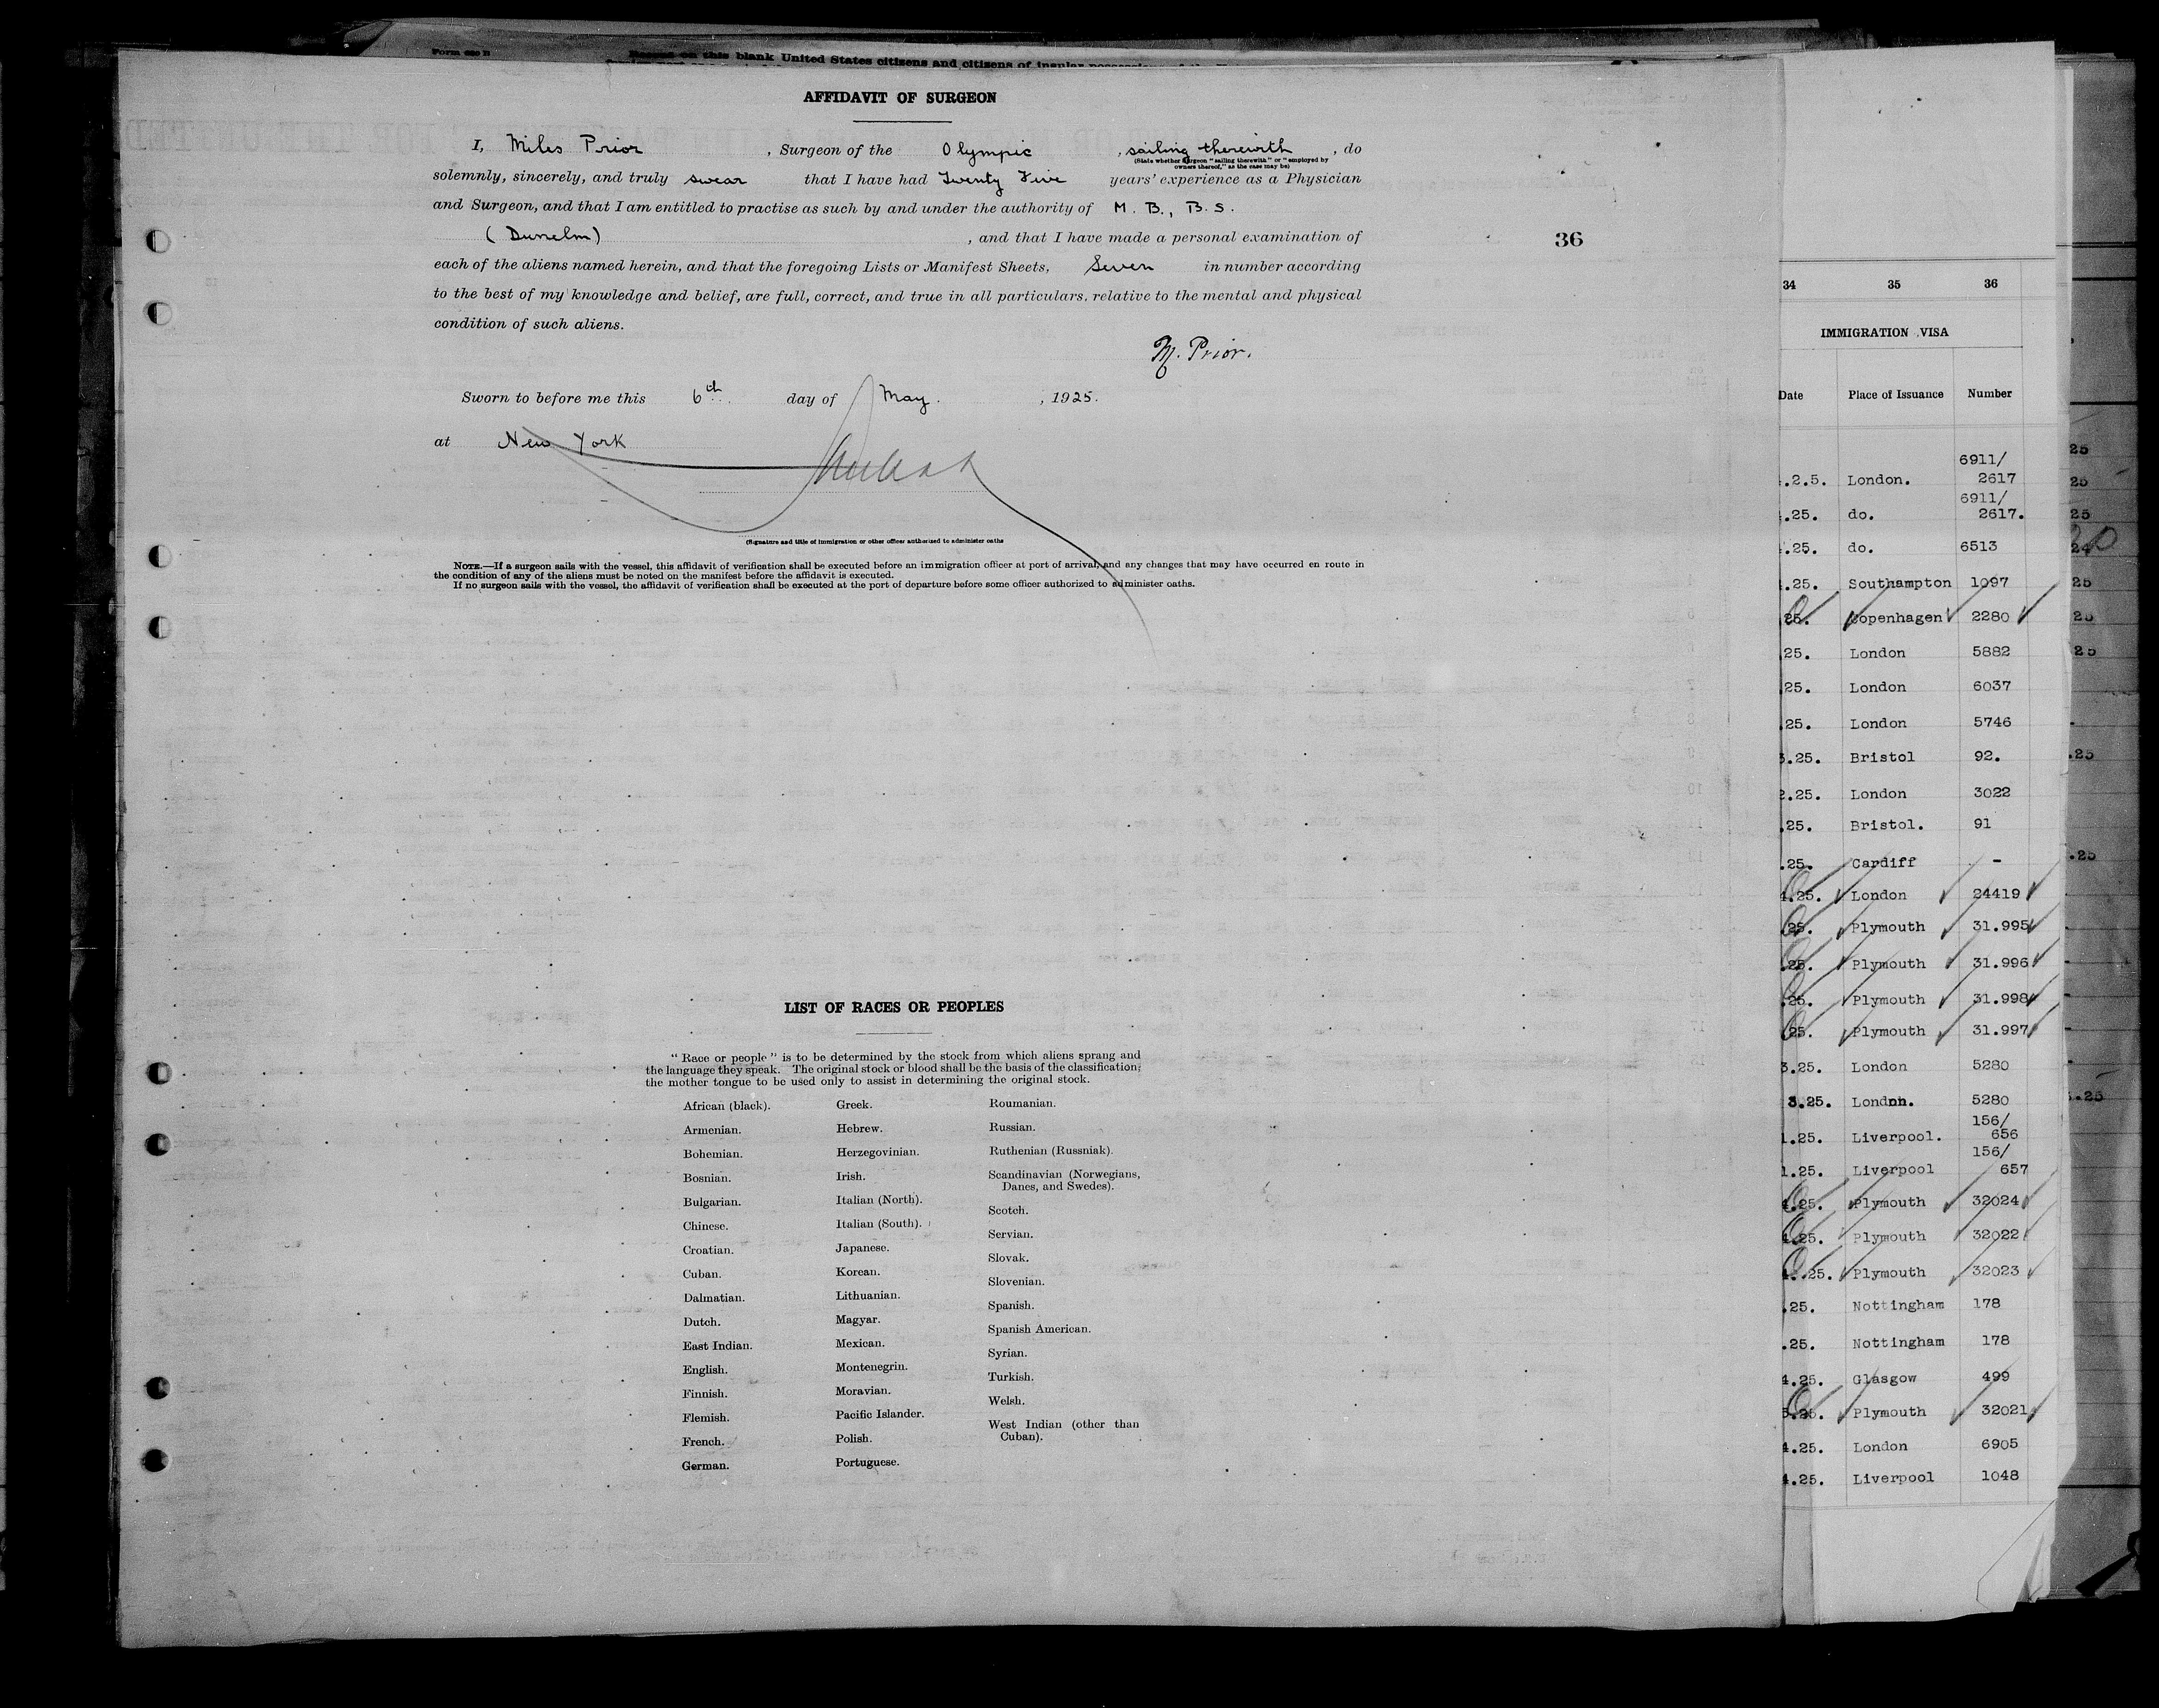 AFFIDAVIT OF SURGEON
I, Miles Prior, Surgeon of the Olympic, sailing therewith, do
(State whether Surgeon "sailing therewith" or "employed by
owners thereof," as the case may be)
solemnly, sincerely, and truly swear that I have had Twenty Five years' experience as a Physician
and Surgeon, and that I am entitled to practise as such by and under the authority of M. B., B.S.
(Dunelm), and that I have made a personal examination of
36
each of the aliens named herein, and that the foregoing Lists or Manifest Sheets, Seven in number according
to the best of my knowledge and belief, are full, correct, and true in all particulars, relative to the mental and physical
condition of such aliens.
M. Prior.
Sworn to before me this 6th day of May, 1925.
at New York
(Signature and title of immigration or other officer authorized to administer oaths
NOTE.—If a surgeon sails with the vessel, this affidavit of verification shall be executed before an immigration officer at port of arrival, and any changes that may have occurred en route in
the condition of any of the aliens must be noted on the manifest before the affidavit is executed.
If no surgeon sails with the vessel, the affidavit of verification shall be executed at the port of departure before some officer authorized to administer oaths.
LIST OF RACES OR PEOPLES
"Race or people" is to be determined by the stock from which aliens sprang and
the language they speak. The original stock or blood shall be the basis of the classification;
the mother tongue to be used only to assist in determining the original stock.
African (black).
Armenian.
Bohemian.
Bosnian.
Bulgarian.
Chinese.
Croatian.
Cuban.
Dalmatian.
Dutch.
East Indian.
English.
Finnish.
Flemish.
French.
German.
Greek.
Hebrew.
Herzegovinian.
Irish.
Italian (North).
Italian (South).
Japanese.
Korean.
Lithuanian.
Magyar.
Mexican.
Montenegrin.
Moravian.
Pacific Islander.
Polish.
Portuguese.
Roumanian.
Russian.
Ruthenian (Russniak).
Scandinavian (Norwegians,
Danes, and Swedes).
Scotch.
Servian.
Slovak.
Slovenian.
Spanish.
Spanish American.
Syrian.
Turkish.
Welsh.
West Indian (other than
Cuban).
34 35 36
IMMIGRATION VISA
Date Place of Issuance Number
6911/
.2.5. London. 2617
6911/
.25. do. 2617.
.25. do. 6513
.25. Southampton 1097
25. Copenhagen 2280
25. London 5882
25. London 6037
.25. London 5746
3.25. Bristol 92.
2.25. London 3022
.25. Bristol. 91
.25. Cardiff -
4.25. London 24419
.25. Plymouth 31.995
.25. Plymouth 31.996
.25. Plymouth 31.998
.25. Plymouth 31.997
3.25. London 5280
3.25. Londnn. 5280
156/
1.25. Liverpool. 656
156/
1.25. Liverpool 657
4.25. Plymouth 32024
4.25. Plymouth 32022
4.25. Plymouth 32023
.25. Nottingham 178
.25. Nottingham 178
4.25. Glasgow 499
3.25. Plymouth 32021
4.25. London 6905
4.25. Liverpool 1048